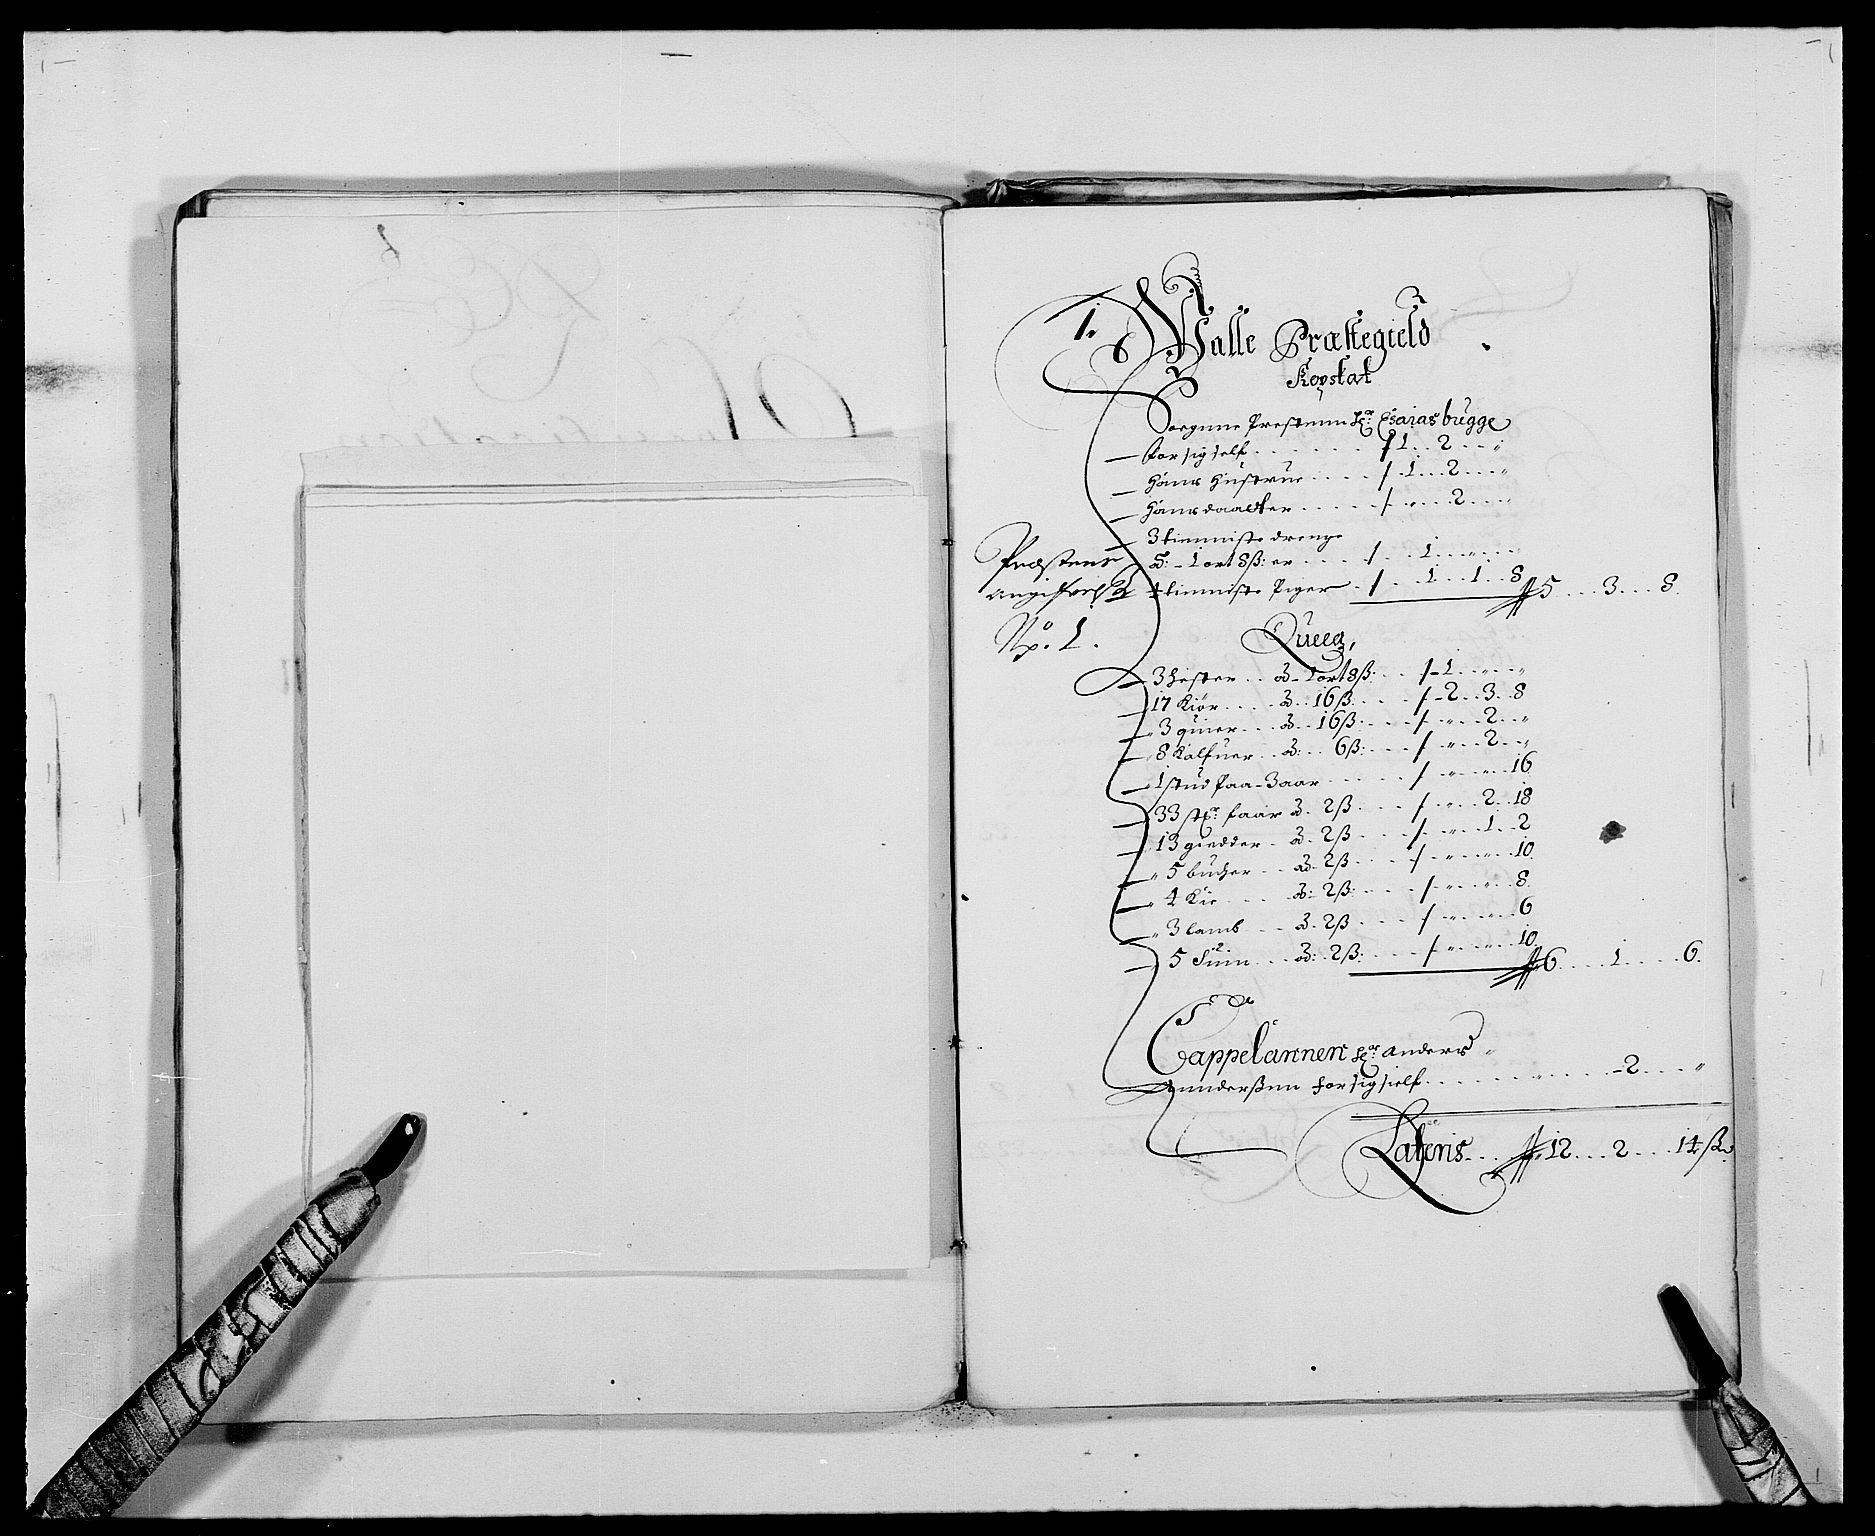 1.
Walle Præstegield
Kopskat
Sorgnne Prestenn Hr: Esaias bugge
for sig self . . . . . . / 1 . . 2 . . . "
Hans Hustrue . . . . / 1 . . 2 . . . "
Hans daatter . . . . / " . . 2 . . . "
3 tienniste drenge
â: - 1 ort 8 ß: er . . . . / . . 1 . . " . . "
4 tienniste Piger . / . . 1 . . 1 . . 8 5 . . . 3 . . . 8
Præstens
angifvelse
No. 1.
Queeg,
3 hester . . â - 1 ort 8 ß: . . . / - 1 . . " . . "
17 Kiør . . . . â . . 16 ß . . . . / - 2 . . 3 . . 8
" 3 quier . . . â . . 16 ß . . . . / " . . 2 . . "
8 Kalfuer . . â: . . 6 ß: . . . / " . . 2 . . "
1 stud paa - 3 aar . . . . . / " . . " . . 16
33 st: faar â . 2 ß . . . . / . " . . 2 . . 18
13 giedder . â . 2 ß . . . . / . " . . 1 . . 2
" 5 bucher . . â . 2 ß . . . . / . " . . " . . 10
" 4 Kie . . . . â: 2 ß: . . . . / . " . . " . . 8
" 3 lamb . . . â . 2 ß . . . . / " . . " . . 6
5 Suin . . . â: . 2 ß: . . . . / . " . . " . . 10 6 . . . . 1 . . . . 6
Cappelannen Hr: Anders "
Anderßenn for sig sielf . . . . . . " . . . . - 2 . . . . "
Lateris . . . 12 . . . 2 . . . 14 ß